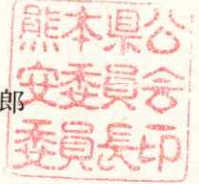 熊本県公
安委員会
委員長印
郎